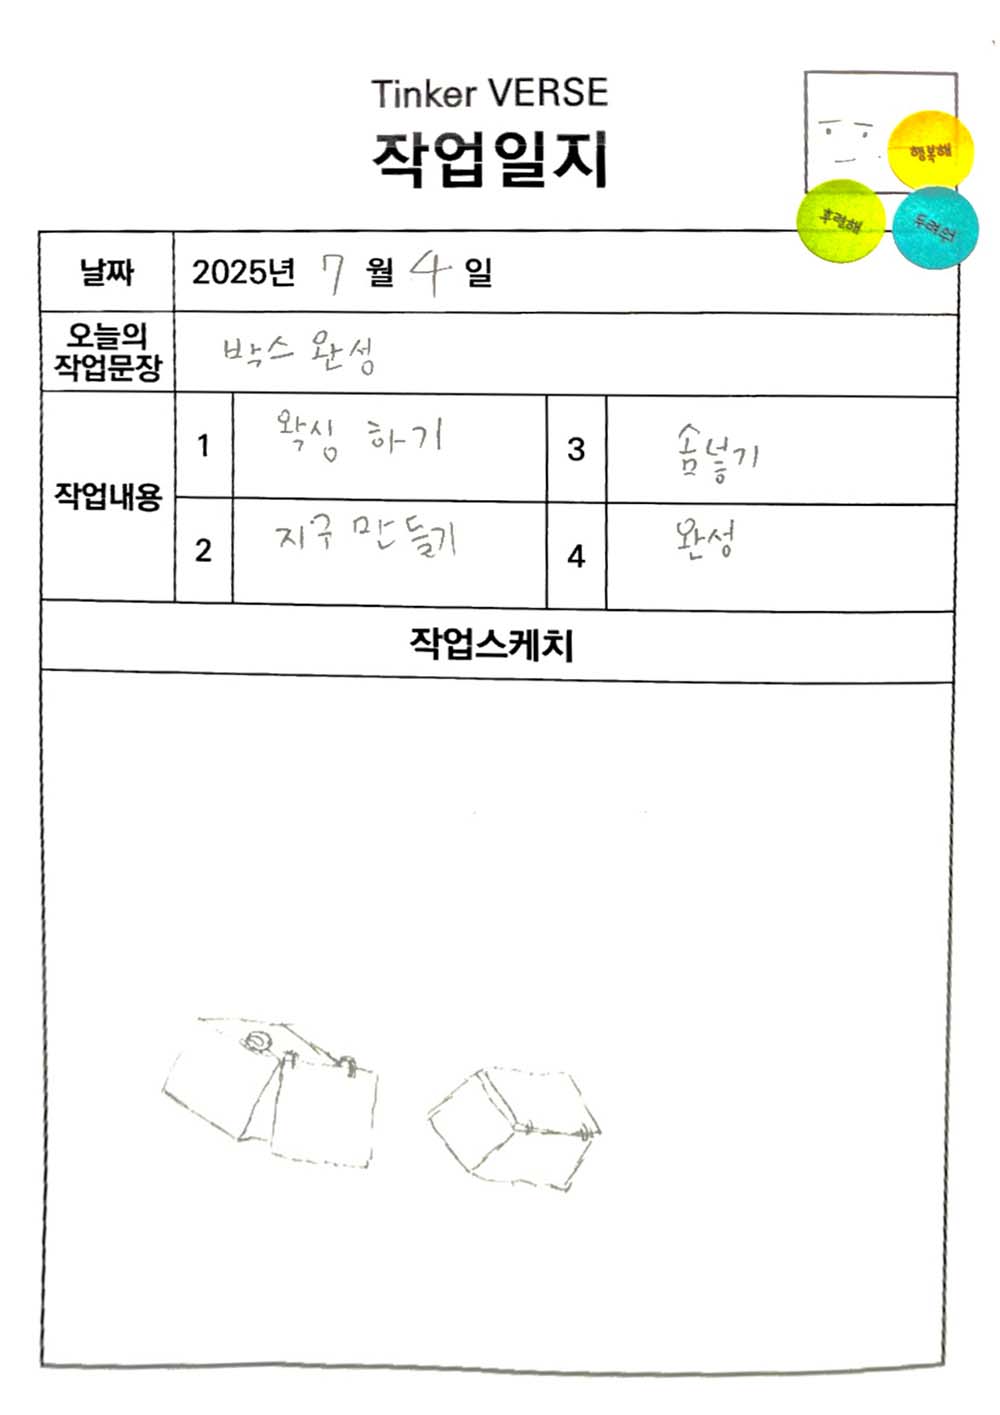 Tinker VERSE
작업일지
행복해
후련해
두려워
날짜
2025년 7월 4일
오늘의
작업문장
박스 완성
작업내용
1
왁싱 하기
3
솜넣기
2
지구 만들기
4
완성
작업스케치